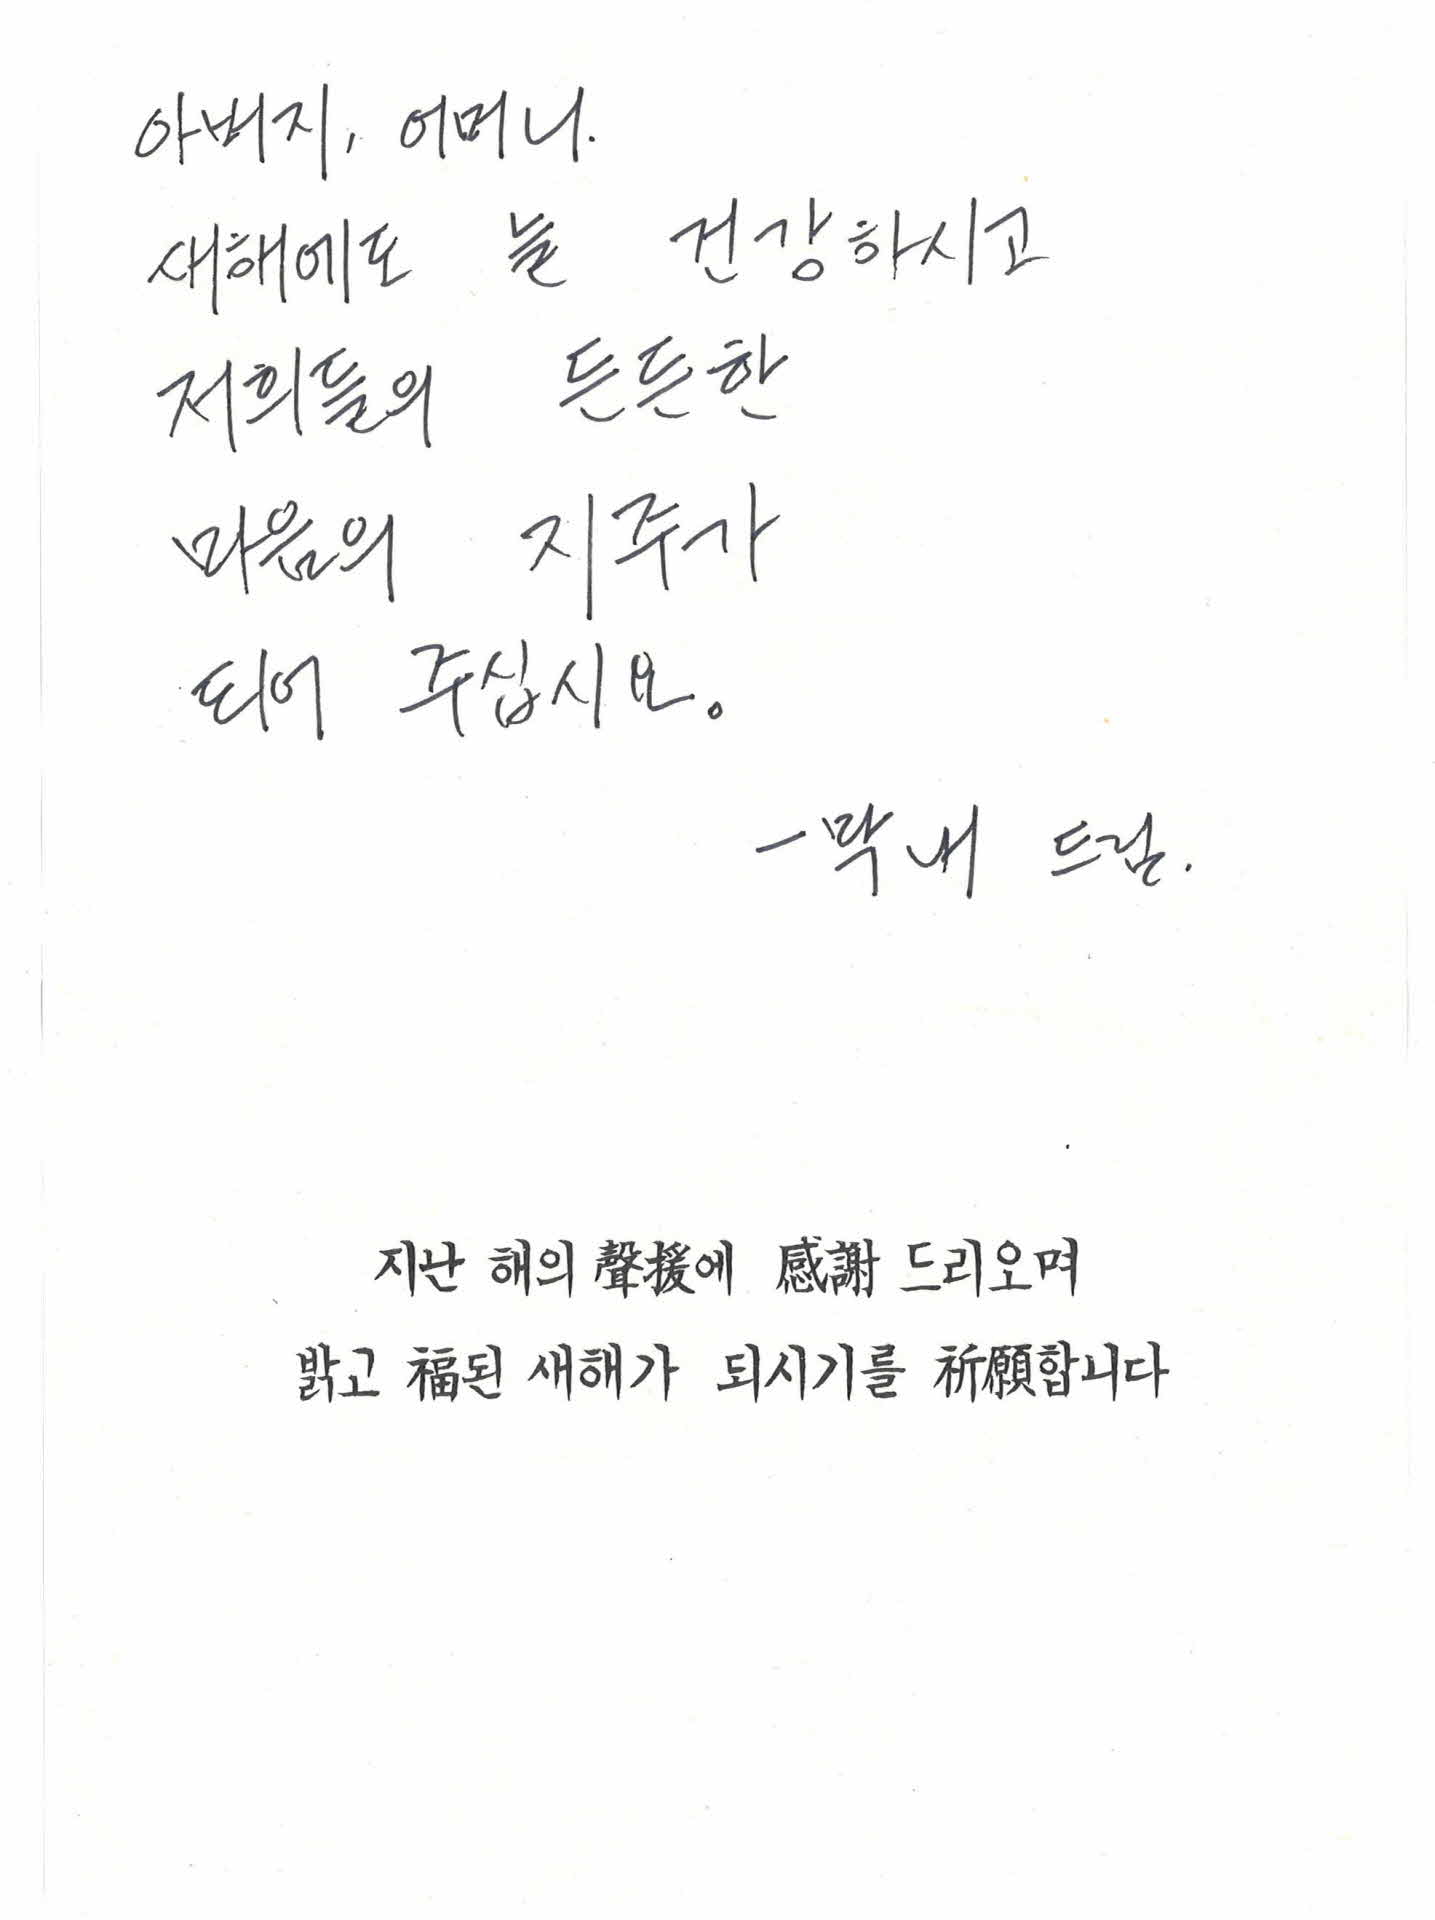 아버지, 어머니.
새해에도 늘 건강하시고
저희들의 든든한
마음의 지주가
되어 주십시요.
- 막내 드림.
지난 해의 聲援에 感謝 드리오며
밝고 福된 새해가 되시기를 祈願합니다